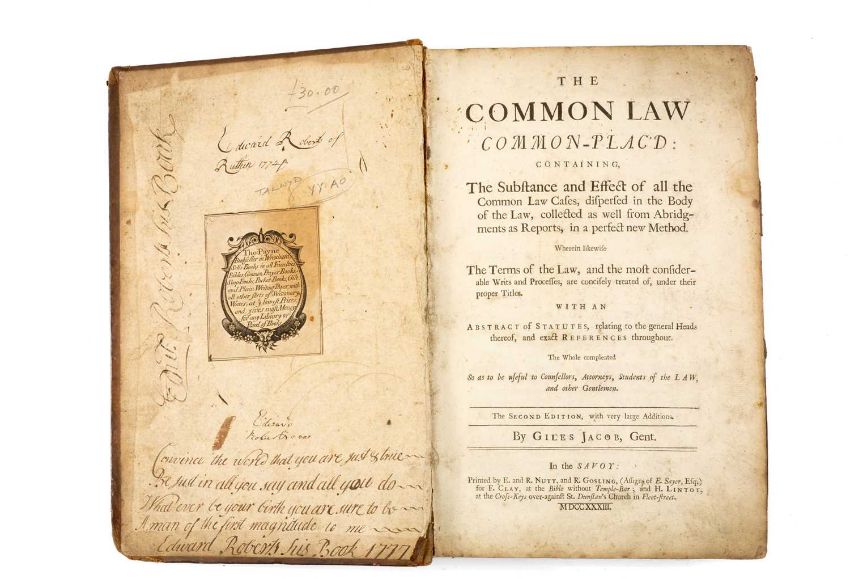 £30.00
Edward Roberts of
Ruthin 1774
Edwd Roberts his Book
Tho: Payne
Bookseller in Wrexham
Sells Books in all Faculties
Bibles, Common Prayer Books
Shop Books, Pocket Books, Gilt
and Plain Writing Paper, with
all other sorts of Stationary
Wares; at ye lowest Prices
and gives most Money
for any Library or
Parcel of Books
Edward
Convince the world that you are just & true
Be just in all you say and all you do
What ever be your birth you are sure to be
A man of the first magnitude to me
Edward Roberts his Book 1777
THE
COMMON LAW
COMMON-PLAC'D:
CONTAINING,
The Subſtance and Effect of all the
Common Law Caſes, diſperſed in the Body
of the Law, collected as well from Abridg-
ments as Reports, in a perfect new Method.
Wherein likewiſe
The Terms of the Law, and the moſt conſider-
able Writs and Proceſſes, are conciſely treated of, under their
proper Titles.
WITH AN
ABSTRACT of STATUTES, relating to the general Heads
thereof, and exact REFERENCES throughout.
The Whole compleated
So as to be uſeful to Counſellors, Attorneys, Students of the LAW,
and other Gentlemen.
The SECOND EDITION, with very large Additions.
By GILES JACOB, Gent.
In the SAVOY:
Printed by E. and R. NUTT, and R. GOSLING, (Aſſigns of E. Sayer, Eſq;)
for E. CLAY, at the Bible without Temple-Bar; and H. LINTOT,
at the Croſs-Keys over-againſt St. Dunſtan's Church in Fleet-ſtreet.
MDCCXXXIII.